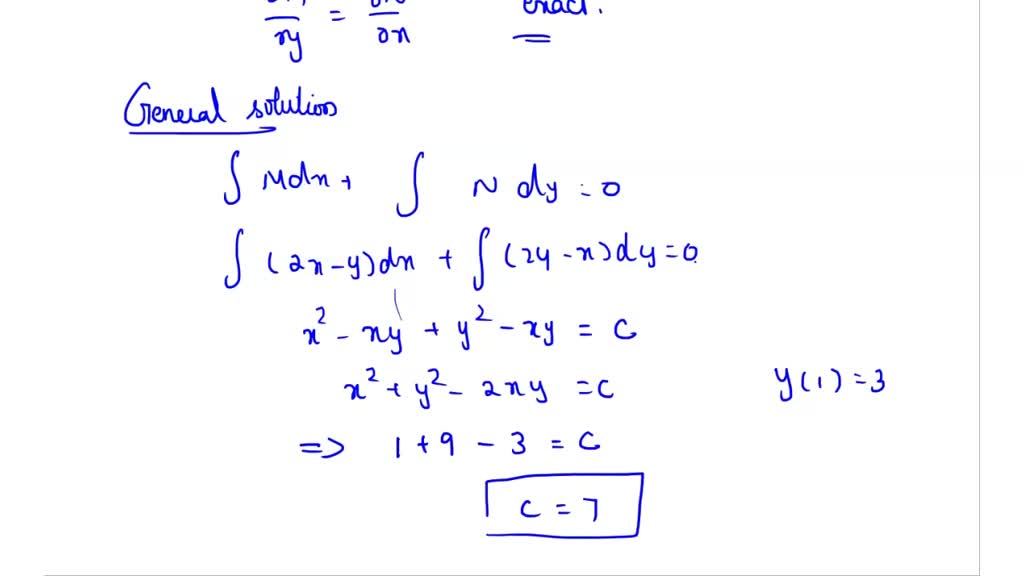 ry = ∂n exact.
General solution
∫ Mdn + ∫ N dy = 0
∫ (2n-y)dn + ∫ (2y-n)dy = 0
x² - xy + y² - xy = C
x² + y² - 2xy = C y(1) = 3
=> 1 + 9 - 3 = C
C = 7